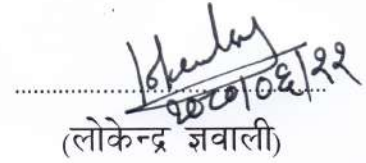 २०८०/०६/२२
(लोकेन्द्र ज्ञवाली)